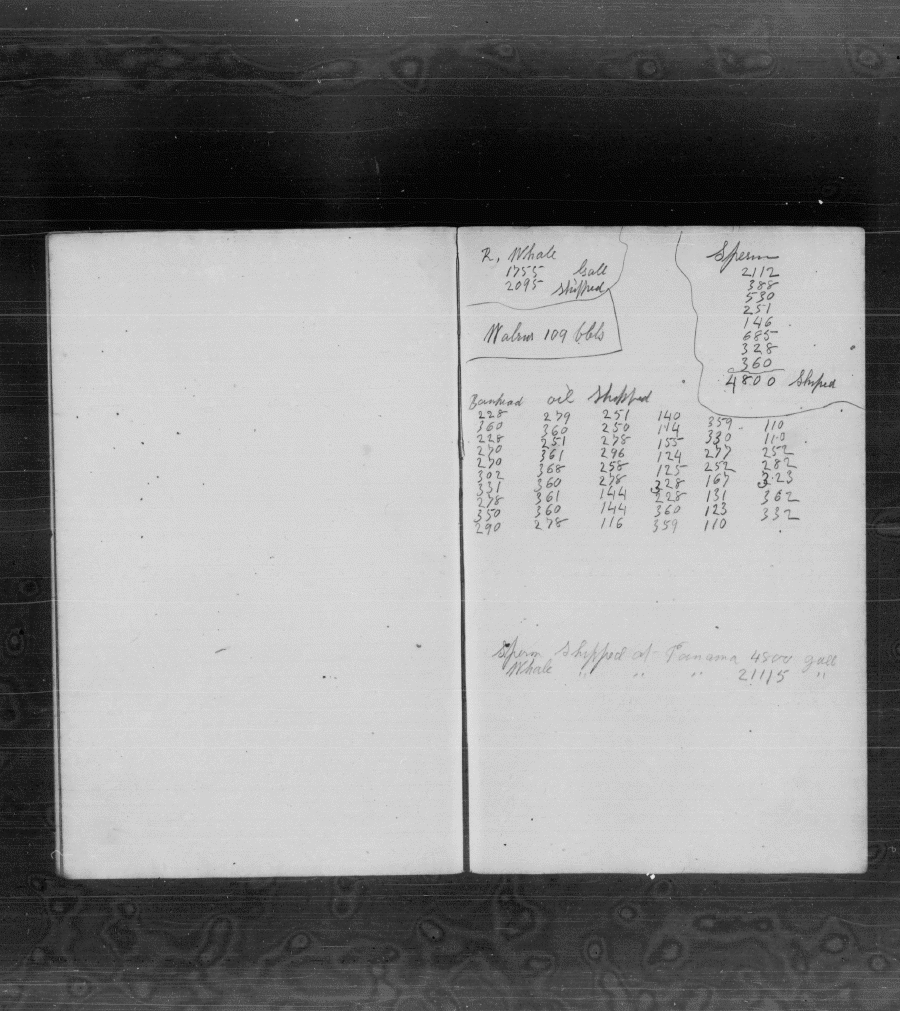 R, Whale
1755 Gall
2095 Shipped
Walrus 109 bbls
Sperm
2112
388
530
251
146
685
328
360
4800 Shiped
oil Shipped
228 279 251 140 359 110
360 360 250 114 330 110
228 251 278 155 277 252
270 361 296 124 252 282
270 368 258 125 167 323
302 360 278 328 131 362
331 361 144 228 123 332
278 360 144 360 110
350 278 116 359
290
Sperm Shipped at Panama 4800 gall
Whale " " " 21115 "